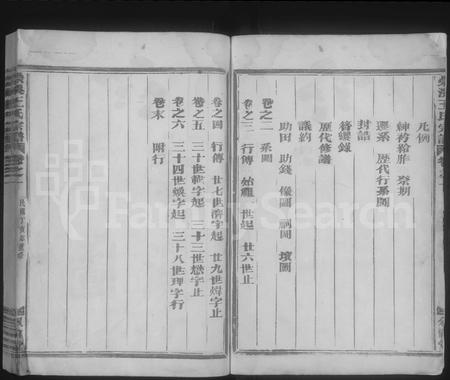 凡例
紳衿給胙 祭期
歷系 歷代行系圖
封誥
簪纓錄
歷代修譜
議約
助田 助錢 像圖 祠圖 墳圖
卷之二 系圖
卷之三 行傳 始 世起 廿六世止
卷之四 行傳 廿七世濟字起 廿九世煒字止
卷之五 三十世 字起 三十三世 字止
卷之六 三十四世 字起 三十八世理字行
卷末 附行
王氏宗譜
卷之一
民國丁亥年重修
FamilySearch